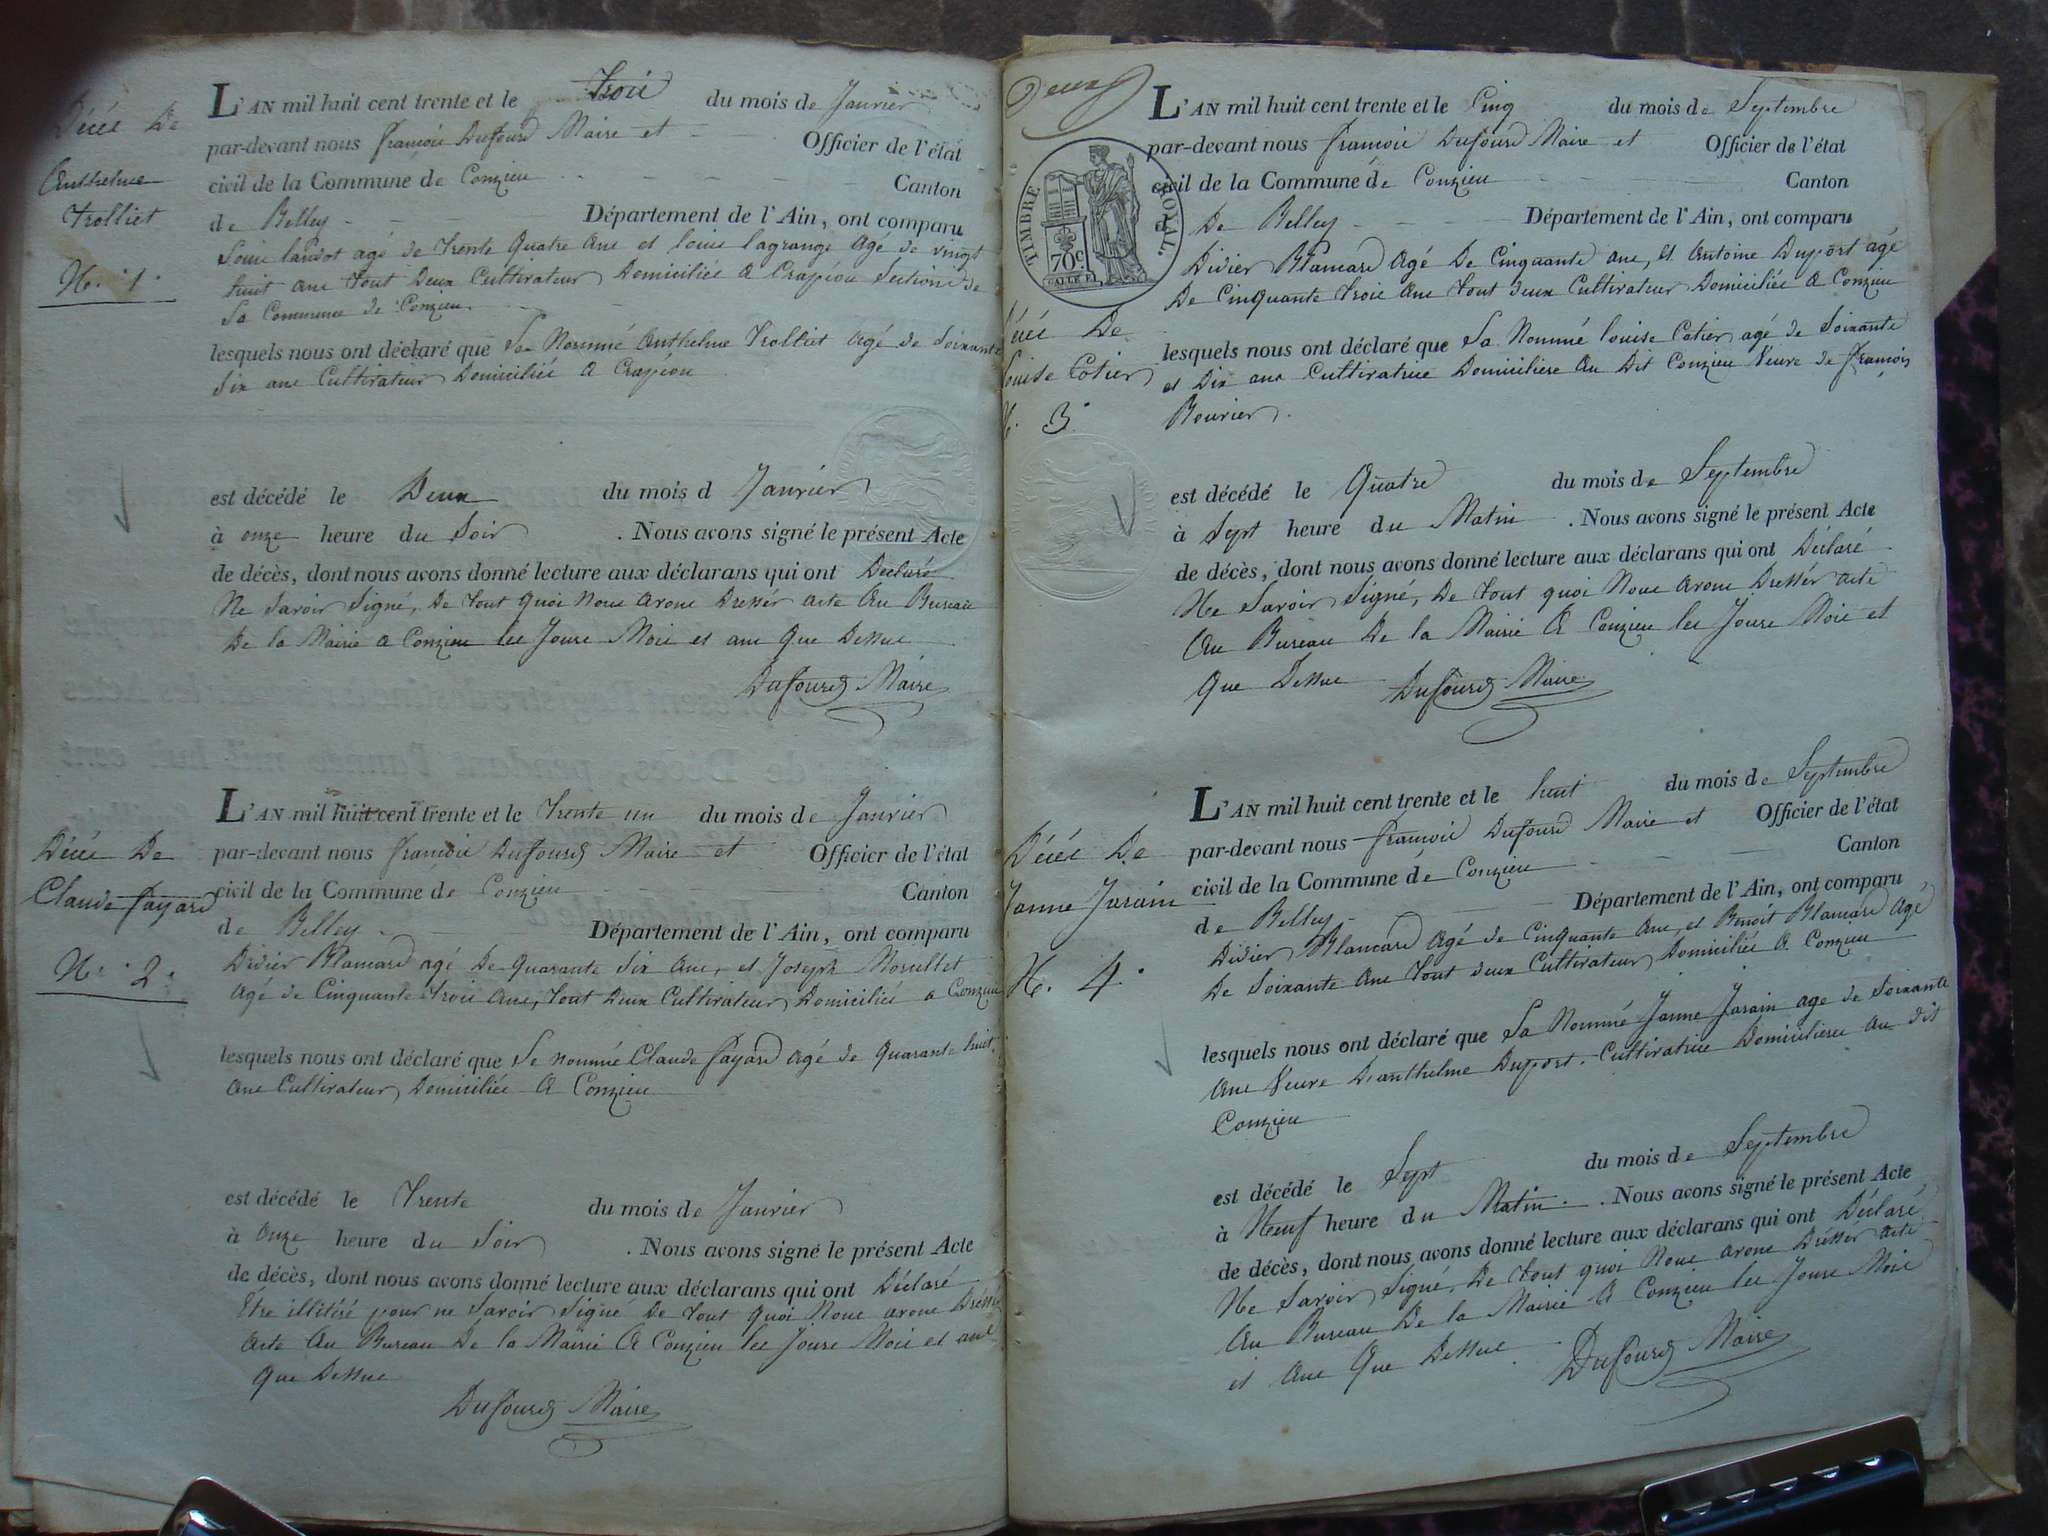 Décès De
Anthelme
Trolliet
No. 1.
L'AN mil huit cent trente et le Trois du mois de Janvier
par-devant nous françois Dufourd Maire et Officier de l'état
civil de la Commune de Conzieu Canton
de Belley Département de l'Ain, ont comparu
Louis landot agé de trente quatre ans et louis lagrange agé de vingt
huit ans tout deux Cultivateur Domiciliés a Crapéou Sections de
la Commune de Conzieu
lesquels nous ont déclaré que Le Nommé Anthelme Trolliet agé de Soixante
Six ans Cultivateur Domicilié a Crapéou
est décédé le Deux du mois d Janvier
à onze heure du Soir . Nous avons signé le présent Acte
de décès, dont nous avons donné lecture aux déclarans qui ont Déclaré
Ne Savoir Signé, De tout quoi Nous avons Dressér acte Au Bureau
De la Mairie a Conzieu les Jours Mois et ans Que Dessus
Dufourd Maire
Décès De
Claude fayard
No. 2.
L'AN mil huit cent trente et le Trente un du mois de Janvier
par-devant nous françois Dufourd Maire et Officier de l'état
civil de la Commune de Conzieu Canton
de Belley Département de l'Ain, ont comparu
Didier Blancard agé De quarante Six ans, et Joseph
Agé de Cinquante trois ans, tout Deux Cultivateur Domiciliés a Conzieu
lesquels nous ont déclaré que Le nommé Claude fayard agé de quarante huit
ans Cultivateur Domiciliés A Conzieu
est décédé le Trente du mois de Janvier
à Onze heure du Soir . Nous avons signé le présent Acte
de décès, dont nous avons donné lecture aux déclarans qui ont Déclaré
Être illétéré pour ne Savoir Signé De tout quoi Nous avons Dressér
Acte Au Bureau De la Mairie A Conzieu les Jours Mois et ans
Que Dessus
Dufourd Maire
Deux
TIMBRE ROYAL.
70c.
Décès De
Louise Cotier
N. 3
L'AN mil huit cent trente et le Cinq du mois de Septembre
par-devant nous françois Dufourd Maire et Officier de l'état
civil de la Commune de Conzieu Canton
de De Belley Département de l'Ain, ont comparu
Didier Blancard Agé De Cinquante ans, Et Antoine Duport agé
De Cinquante trois ans tout deux Cultivateur Domiciliés A Conzieu
lesquels nous ont déclaré que La Nommé louise Cotier agé de Soixante
et Dix ans Cultivatrice Domicilière Au Dit Conzieu Veuve de françois
Bouvier.
est décédé le Quatre du mois de Septembre
à Sept heure du Matin . Nous avons signé le présent Acte
de décès, dont nous avons donné lecture aux déclarans qui ont Déclaré
Ne Savoir Signé, De tout quoi Nous avons Dressér acte
Au Bureau De la Mairie A Conzieu les Jours Mois et
Que Dessus Dufourd Maire
Décès De
Janne Jarain
N. 4.
L'AN mil huit cent trente et le huit du mois de Septembre
par-devant nous françois Dufourd Maire et Officier de l'état
civil de la Commune de Conzieu Canton
de Belley Département de l'Ain, ont comparu
Didier Blancard Agé de Cinquante Ans, et Benoit Blancard Agé
De Soixante ans tout deux Cultivateur Domiciliés A Conzieu
lesquels nous ont déclaré que La Nommé Janne Jarain age de Soixante
ans Veuve D'anthelme Duport. Cultivatrice Domicilière au dit
Conzieu
est décédé le Sept du mois de Septembre
à Neuf heure du Matin. . Nous avons signé le présent Acte
de décès, dont nous avons donné lecture aux déclarans qui ont Déclaré
Ne Savoir Signé, De tout quoi Nous avons Dressér acte
Au Bureau De la Mairie A Conzieu les Jours Mois
et Ans Que Dessus Dufourd Maire